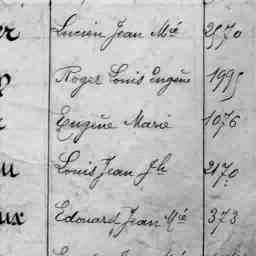 Lucien Jean Mie 2570
Roger Louis Eugène 1995
Eugène Marie 1076
Louis Jean Jh 2170
Edouard Jean Mie 373